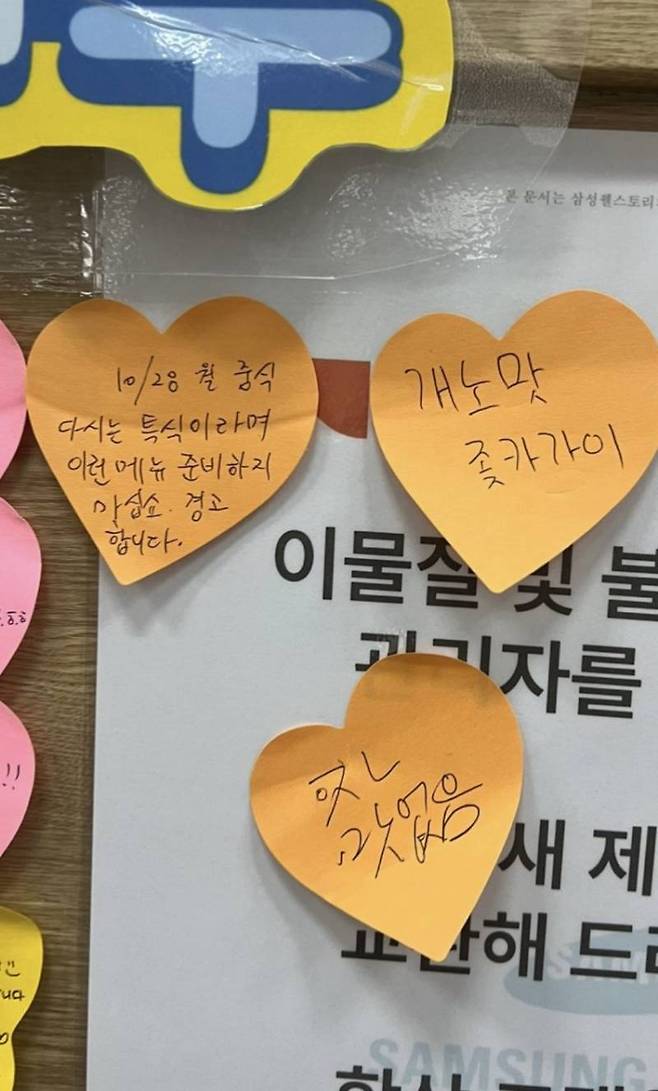 본 문서는 삼성웰스토리
10/28 월 중식
다시는 특식이라며
이런 메뉴 준비하지
마십쇼. 경고
합니다.
개노맛
좆카가이
이물질 및 불
관리자를
맛없음
새 제
교환해 드리
SAMSUNG
!!
니다